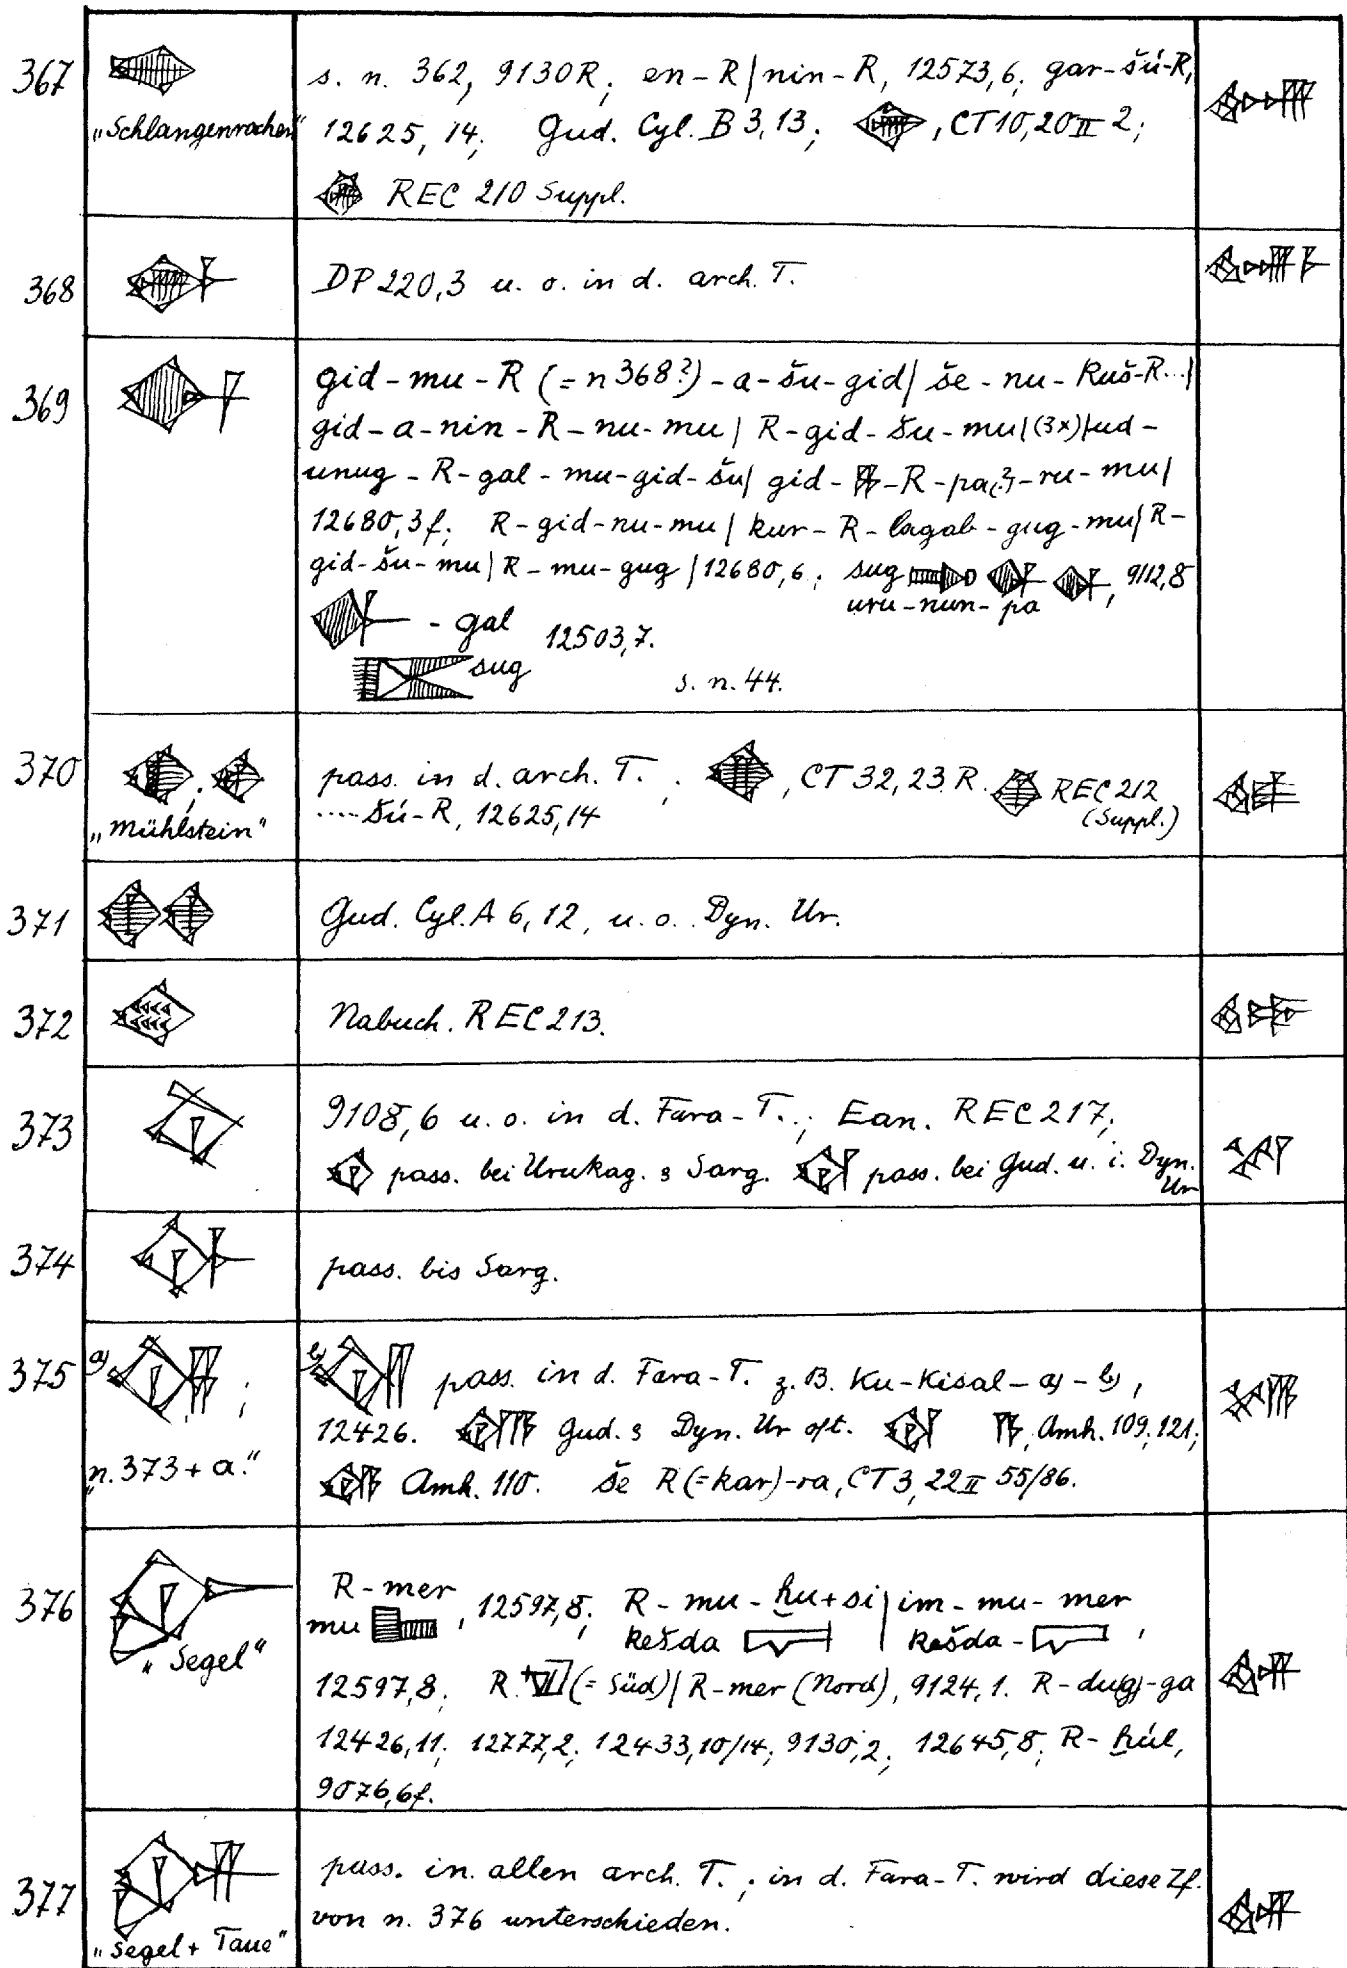 367 s. n. 362, 9130R; en-R|nin-R, 12573,6; gar-šú-R,
„Schlangenrachen“ 12625, 14; Gud. Cyl. B 3,13; , CT 10, 20 II 2;
REC 210 Suppl.
368 DP 220,3 u. o. in d. arch. T.
369 gid-mu-R (= n 368?)-a-šu-gid| še-nu-kuš-R...|
gid-a-nin-R-nu-mu| R-gid-šu-mu|(3x)|ud-
unug-R-gal-mu-gid-šu| gid- -R-pa(?)-ru-mu|
12680,3f; R-gid-nu-mu| kur-R-lagab-gug-mu| R-
gid-šu-mu| R-mu-gug |12680,6; sug , 9112,8
uru-nun-pa
-gal 12503,7.
sug s. n. 44.
370 pass. in d. arch. T.; , CT 32, 23 R. REC 212
„Mühlstein“ ....šú-R, 12625,14 (Suppl.)
371 Gud. Cyl. A 6, 12, u. o. Dyn. Ur.
372 Nabuch. REC 213.
373 9108,6 u. o. in d. Fara-T.; Ean. REC 217;
pass. bei Urukag. s Sarg. pass. bei Gud. u. i. Dyn.
Ur
374 pass. bis Sarg.
375 a) ; b) pass. in d. Fara-T. z. B. Ku-Kisal-a)-b),
12426. Gud. s Dyn. Ur oft. , Amh. 109, 121;
„n. 373 + a.“ Amh. 110. še R (=kar)-ra, CT 3, 22 II 55/86.
376 R-mer
mu , 12597,8; R-mu-ḫu+si| im-mu-mer
kešda | kešda- ,
„Segel“
12597,8; R. (= Süd)| R-mer (Nord), 9124,1. R-dug-ga
12426,11; 12777,2; 12433,10/14; 9130,2; 12645,8; R-ḫúl,
9076,6f.
377 pass. in allen arch. T.; in d. Fara-T. wird diese Zf.
von n. 376 unterschieden.
„Segel + Taue“